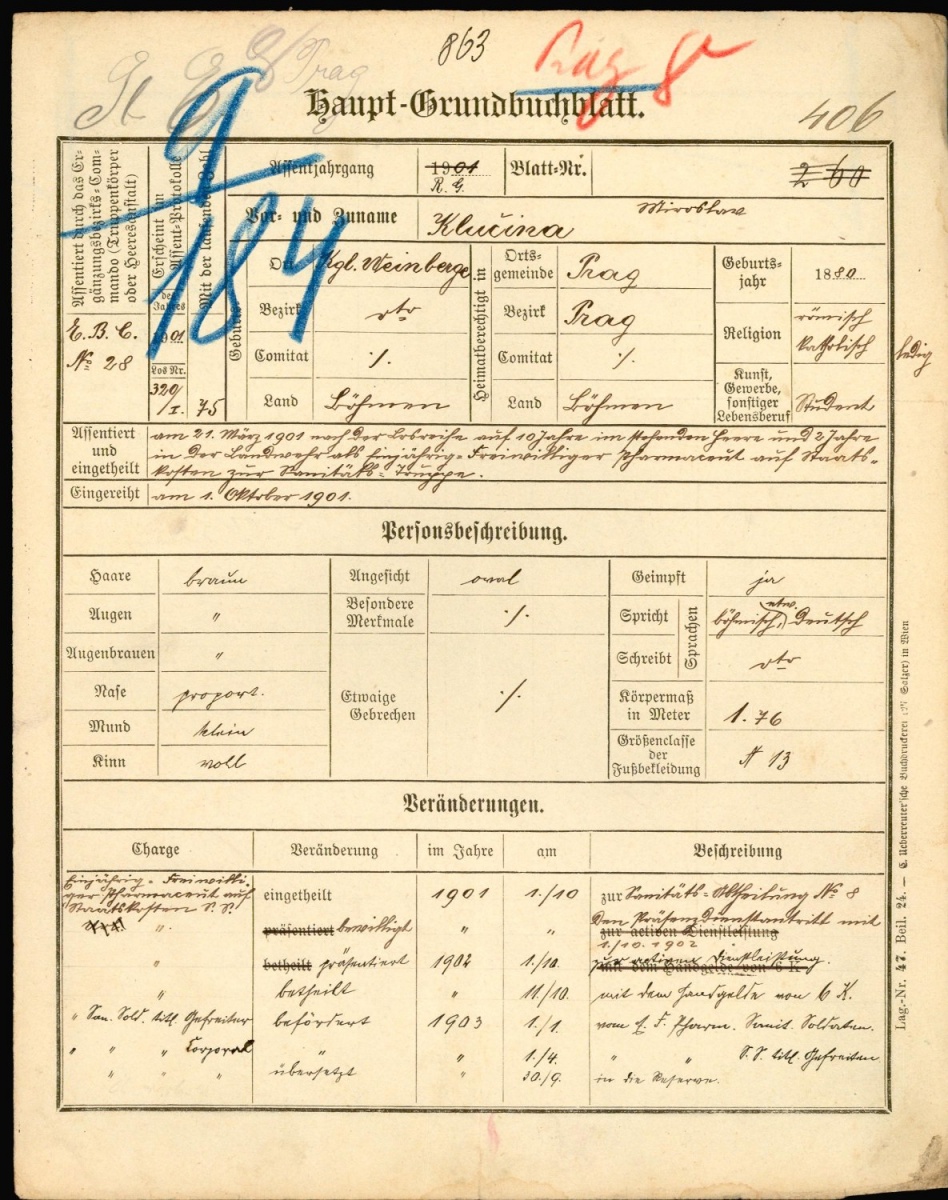 863
Prag 8
Prag
406
Haupt-Grundbuchblatt.
Assentiert durch das Ergänzungsbezirks-Commando (Truppenkörper oder Heeresanstalt)
E. B. C.
No 28
Erscheint im Assent-Protokolle
des Jahres
1901
Los Nr.
320/I.
Mit der laufenden Zahl
75
9/184
Assentjahrgang
1901
R. G.
Blatt-Nr.
260
Vor- und Zuname
Klučina Miroslaw
Geburts-
Ort
Kgl. Weinberge
Bezirk
dto
Comitat
·/.
Land
Böhmen
Heimatberechtigt in
Orts-
gemeinde
Prag
Bezirk
Prag
Comitat
·/.
Land
Böhmen
Geburts-
jahr
1880
Religion
römisch
katholisch
ledig
Kunst,
Gewerbe,
sonstiger
Lebensberuf
Student
Assentiert
und
eingetheilt
am 21. März 1901 nach der Losreihe auf 10 Jahre im stehenden Heere und 2 Jahre
in der Landwehr als Einjährig-Freiwilliger Pharmaceut auf Staats-
kosten zur Sanitäts-Truppe.
Eingereiht
am 1. Oktober 1901.
Personsbeschreibung.
Haare
braun
Augen
"
Augenbrauen
"
Nase
proport.
Mund
klein
Kinn
voll
Angesicht
oval
Besondere
Merkmale
·/.
Etwaige
Gebrechen
·/.
Geimpft
ja
Spricht
Sprachen
böhmisch, etw. deutsch
Schreibt
dto
Körpermaß
in Meter
1.76
Größenclasse
der
Fußbekleidung
13
Veränderungen.
Charge
Veränderung
im Jahre
am
Beschreibung
Einjährig-Freiwilli-
ger Pharmaceut auf
Staatskosten S. S.
eingetheilt
1901
1./10
zur Sanitäts-Abtheilung No 8
"
präsentiert bewilligt
"
"
den Präsenzdienstantritt mit
zur activen Dienstleistung
1./10.1902.
"
betheilt präsentiert
1902
1./10.
mit dem Handgelde von 6 K
zur activen Dienstleistung.
"
betheilt
"
11/10.
mit dem Handgelde von 6 K.
" San. Sold. titl. Gefreiter
befördert
1903
1./1.
vom E. F. Pharm. Sanit. Soldaten.
" " " Corporal
"
"
1./4.
" " S. S. titl. Gefreiten
" " "
übersetzt
"
30./9.
in die Reserve.
Lag.-Nr. 47. Beil. 24. — C. Ueberreuter'sche Buchdruckerei (M. Salzer) in Wien